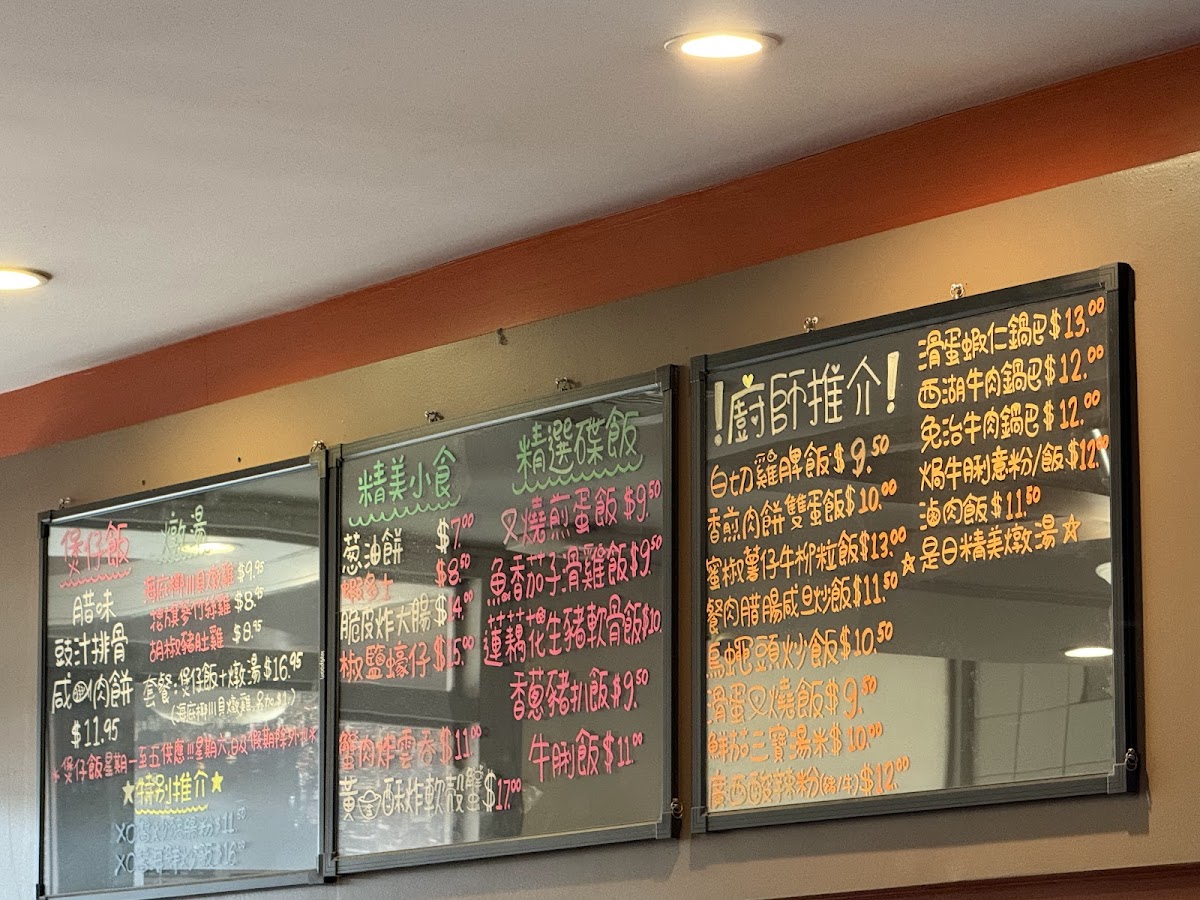 煲仔飯
腊味
豉汁排骨
咸魚肉餅
$11.95
燉湯
海底椰川貝燉雞 $9.95
$8.95
胡椒豬肚雞 $8.95
套餐:煲仔飯+燉湯 $16.95
(海底椰川貝燉雞,另加$1)
*煲仔飯星期一至五供應!!!星期六,日及假期除外
☆特别推介☆
XO醬
XO醬海鮮炒飯 $16.
精美小食
葱油餅 $7.00
蝦多士 $8.50
脆皮炸大腸 $14.00
椒鹽蠔仔 $15.00
蟹肉炸雲吞 $11.00
黃金酥炸軟殼蟹 $17.00
精選碟飯
叉燒煎蛋飯 $9.50
魚香茄子滑雞飯 $9.50
蓮耦花生豬軟骨飯 $10.
香蔥豬扒飯 $9.50
牛脷飯 $11.00
!廚師推介!
白切雞脾飯 $9.50
香煎肉餅雙蛋飯 $10.00
蜜椒薯仔牛柳粒飯 $13.00
餐肉腊腸咸旦炒飯 $11.50
烏蠅頭炒飯 $10.50
滑蛋叉燒飯 $9.50
鮮茄三寶湯米 $10.00
廣西酸辣粉(豬/牛) $12.00
滑蛋蝦仁鍋巴 $13.00
西湖牛肉鍋巴 $12.00
免治牛肉鍋巴 $12.00
焗牛脷意粉/飯 $12.00
滷肉飯 $11.50
☆是日精美燉湯☆